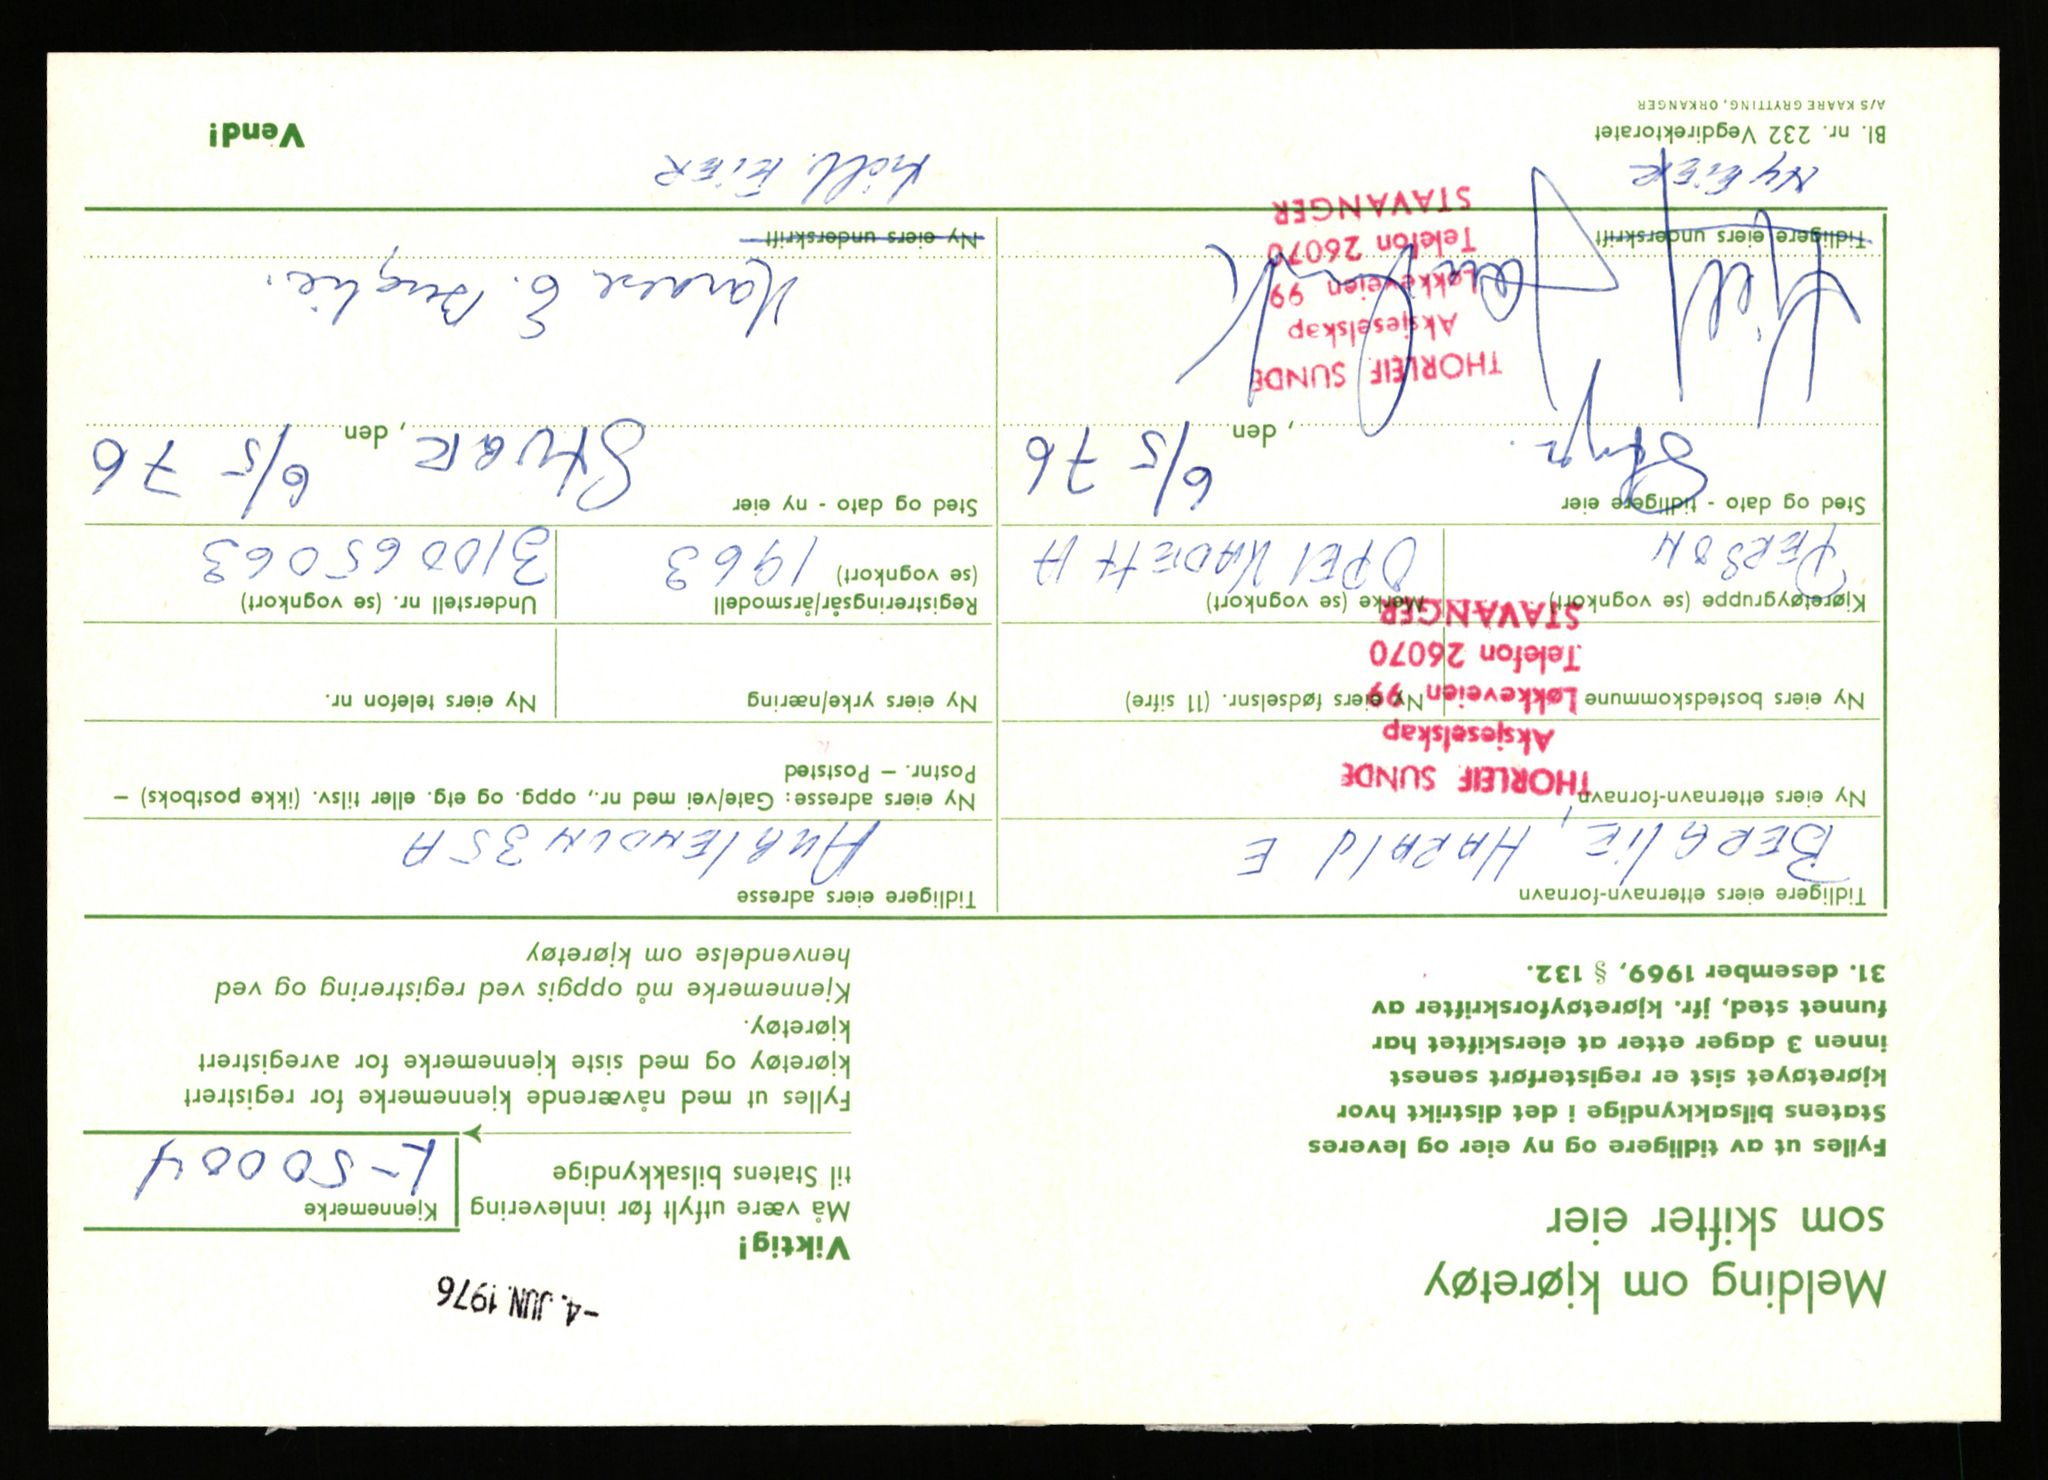 -4. JUN. 1976
Melding om kjøretøy
som skifter eier
Fylles ut av tidligere og ny eier og leveres
Statens bilsakkyndige i det distrikt hvor
kjøretøyet sist er registerført senest
innen 3 dager etter at eierskiftet har
funnet sted, jfr. kjøretøyforskrifter av
31. desember 1969, § 132.
Viktig!
Må være utfylt før innlevering
til Statens bilsakkyndige
Kjennemerke
L-50004
Fylles ut med nåværende kjennemerke for registrert
kjøretøy og med siste kjennemerke for avregistrert
kjøretøy.
Kjennemerke må oppgis ved registrering og ved
henvendelse om kjøretøy
Tidligere eiers etternavn-fornavn
BERGLIE, HARALD E
Tidligere eiers adresse
AUGLENDSVN 35A
Ny eiers etternavn-fornavn
THORLEIF SUNDE
Aksjeselskap
Løkkeveien 99
Telefon 26070
STAVANGER
Ny eiers adresse: Gate/vei med nr., oppg. og etg. eller tilsv. (ikke postboks) –
Postnr. – Poststed
Ny eiers bostedskommune
Ny eiers fødselsnr. (11 sifre)
Ny eiers yrke/næring
Ny eiers telefon nr.
Kjøretøygruppe (se vognkort)
PERSON
Merke (se vognkort)
OPEL KADETT A
Registreringsår/årsmodell
(se vognkort)
1963
Understell nr. (se vognkort)
310065063
Sted og dato - tidligere eier
, den
6/5 76
Sted og dato - ny eier
, den
6/5 76
THORLEIF SUNDE
Aksjeselskap
Løkkeveien 99
Telefon 26070
STAVANGER
Harald E. Berglie.
Tidligere eiers underskrift
NY EIER
Ny eiers underskrift
tidl. EIER
Bl. nr. 232 Vegdirektoratet
A/S KAARE GRYTTING, ORKANGER
Vend!